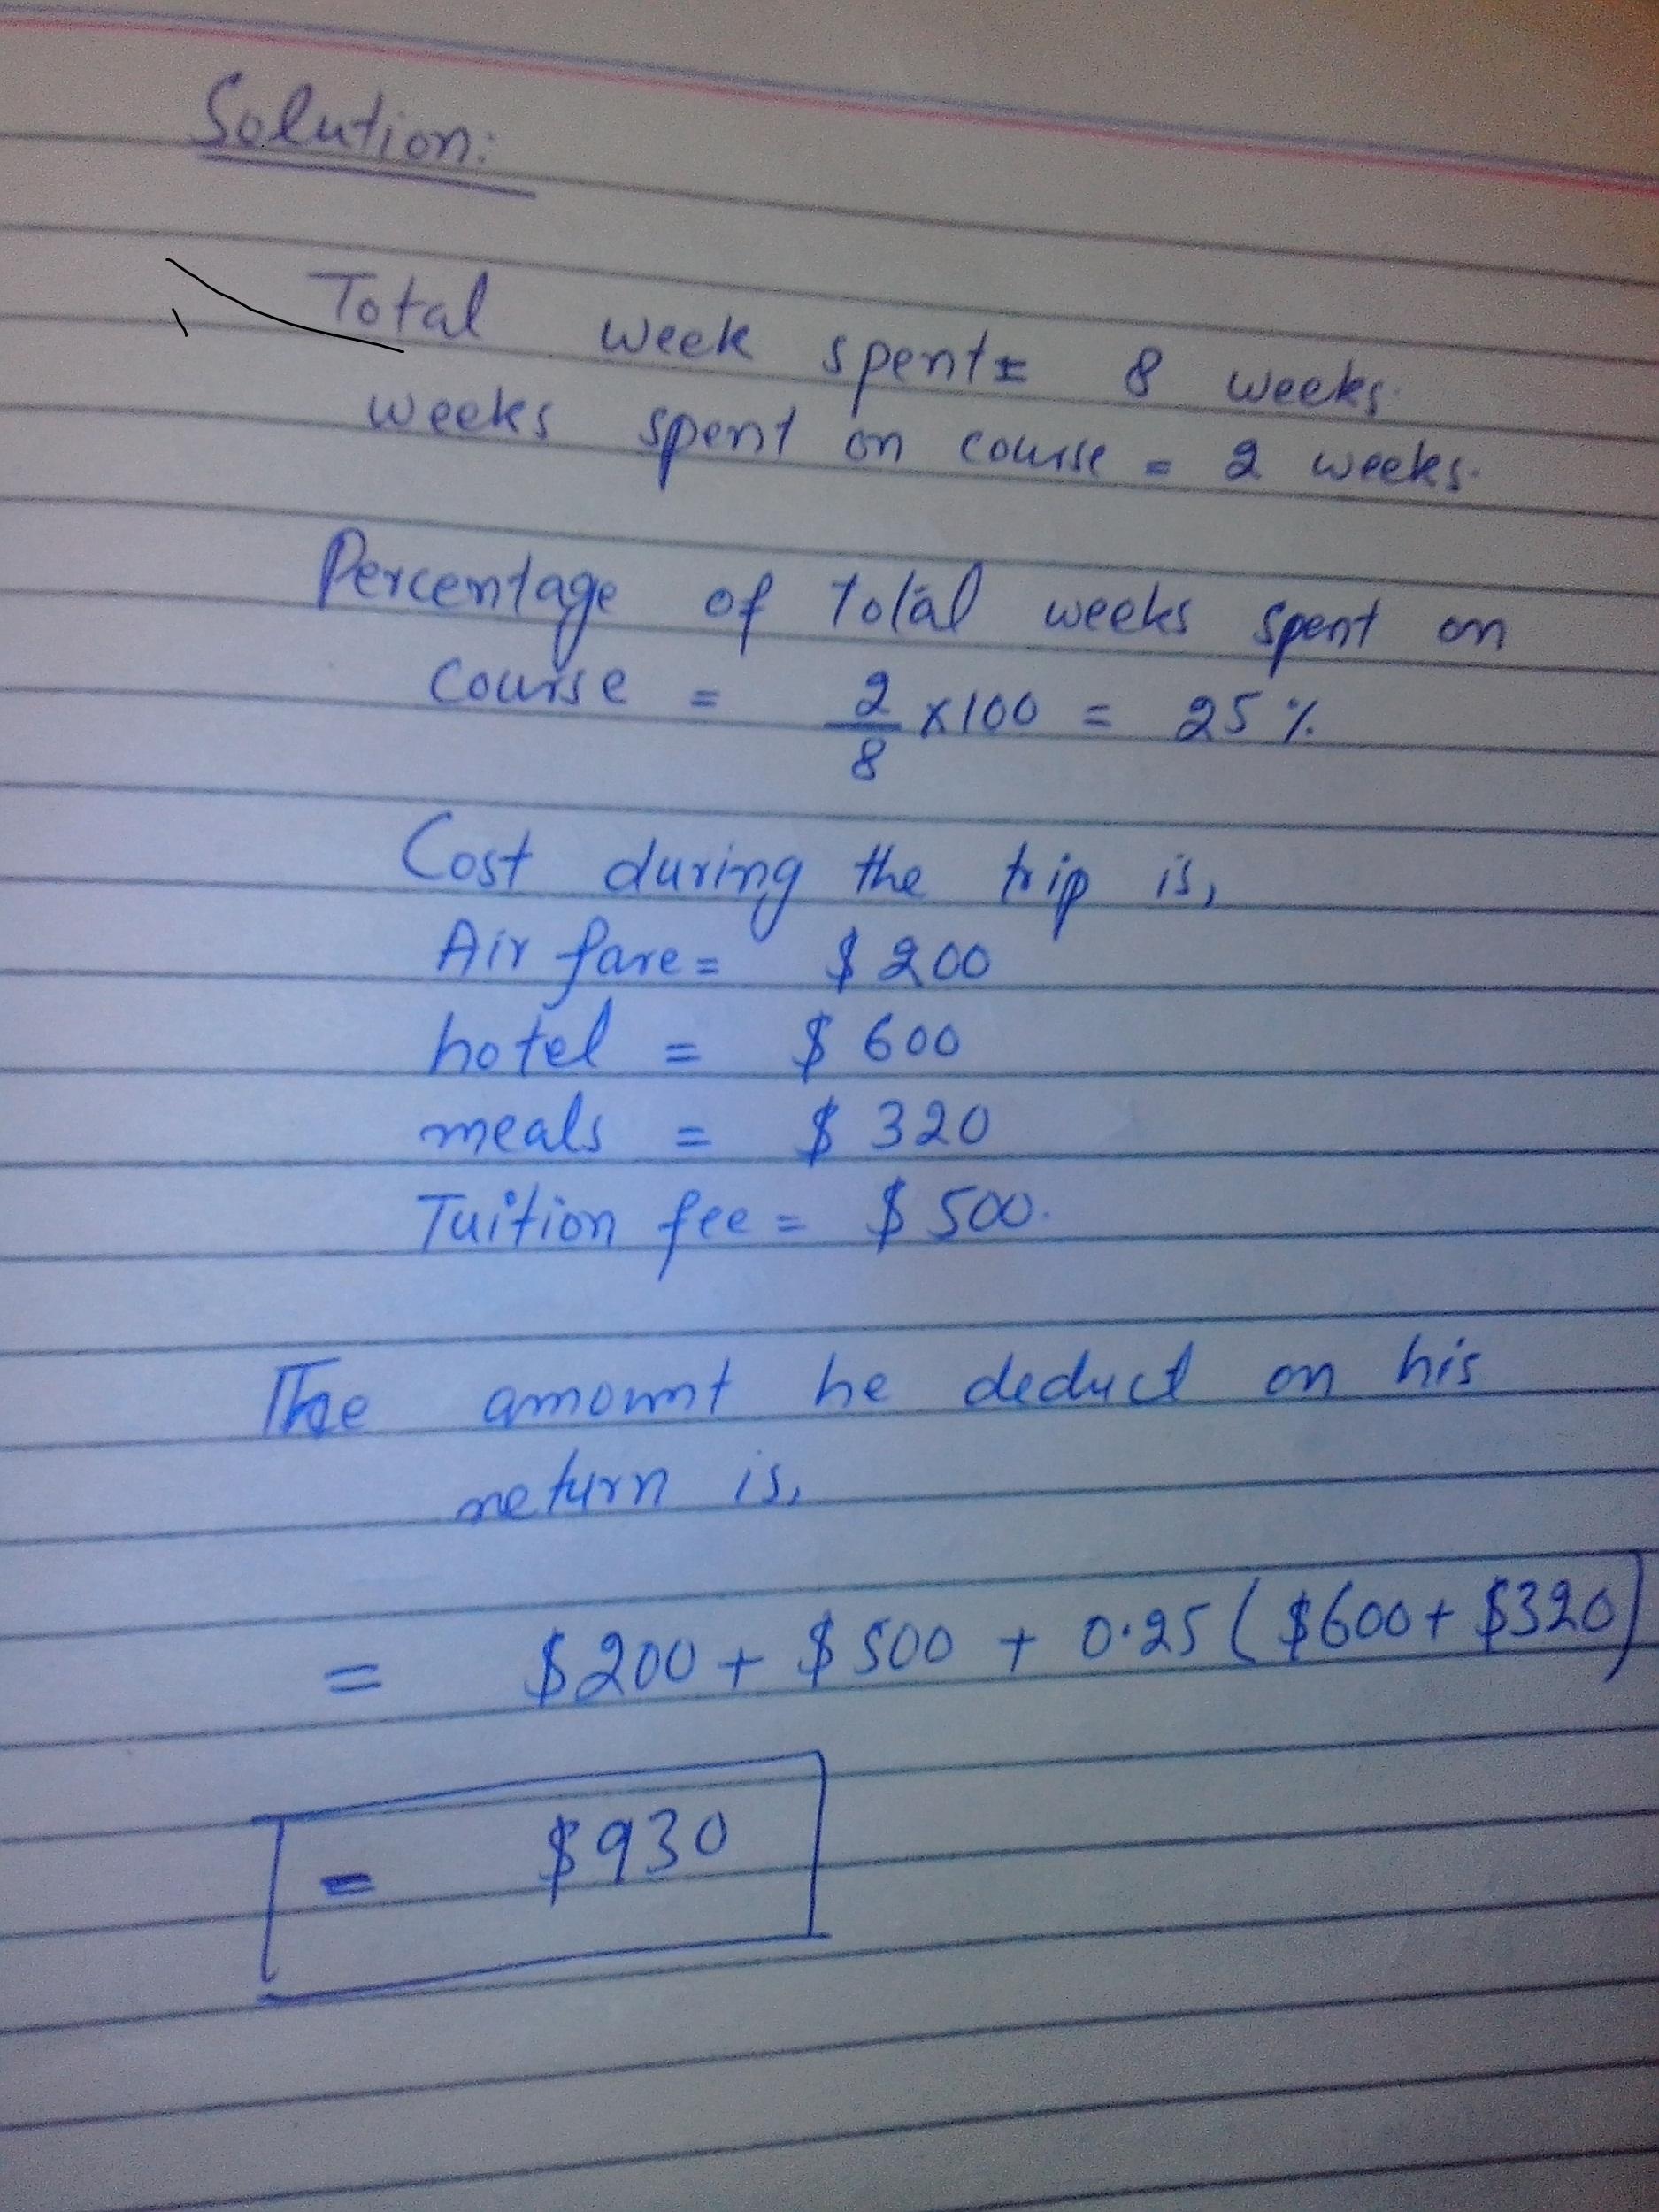 Solution:
Total week spent= 8 weeks.
weeks spent on course = 2 weeks.
Percentage of Total weeks spent on
course = 2/8 x100 = 25%
Cost during the trip is,
Air fare= $200
hotel = $600
meals = $320
Tuition fee = $500.
The amount he deduct on his
return is,
= $200 + $500 + 0.25 ($600+ $320)
= $930